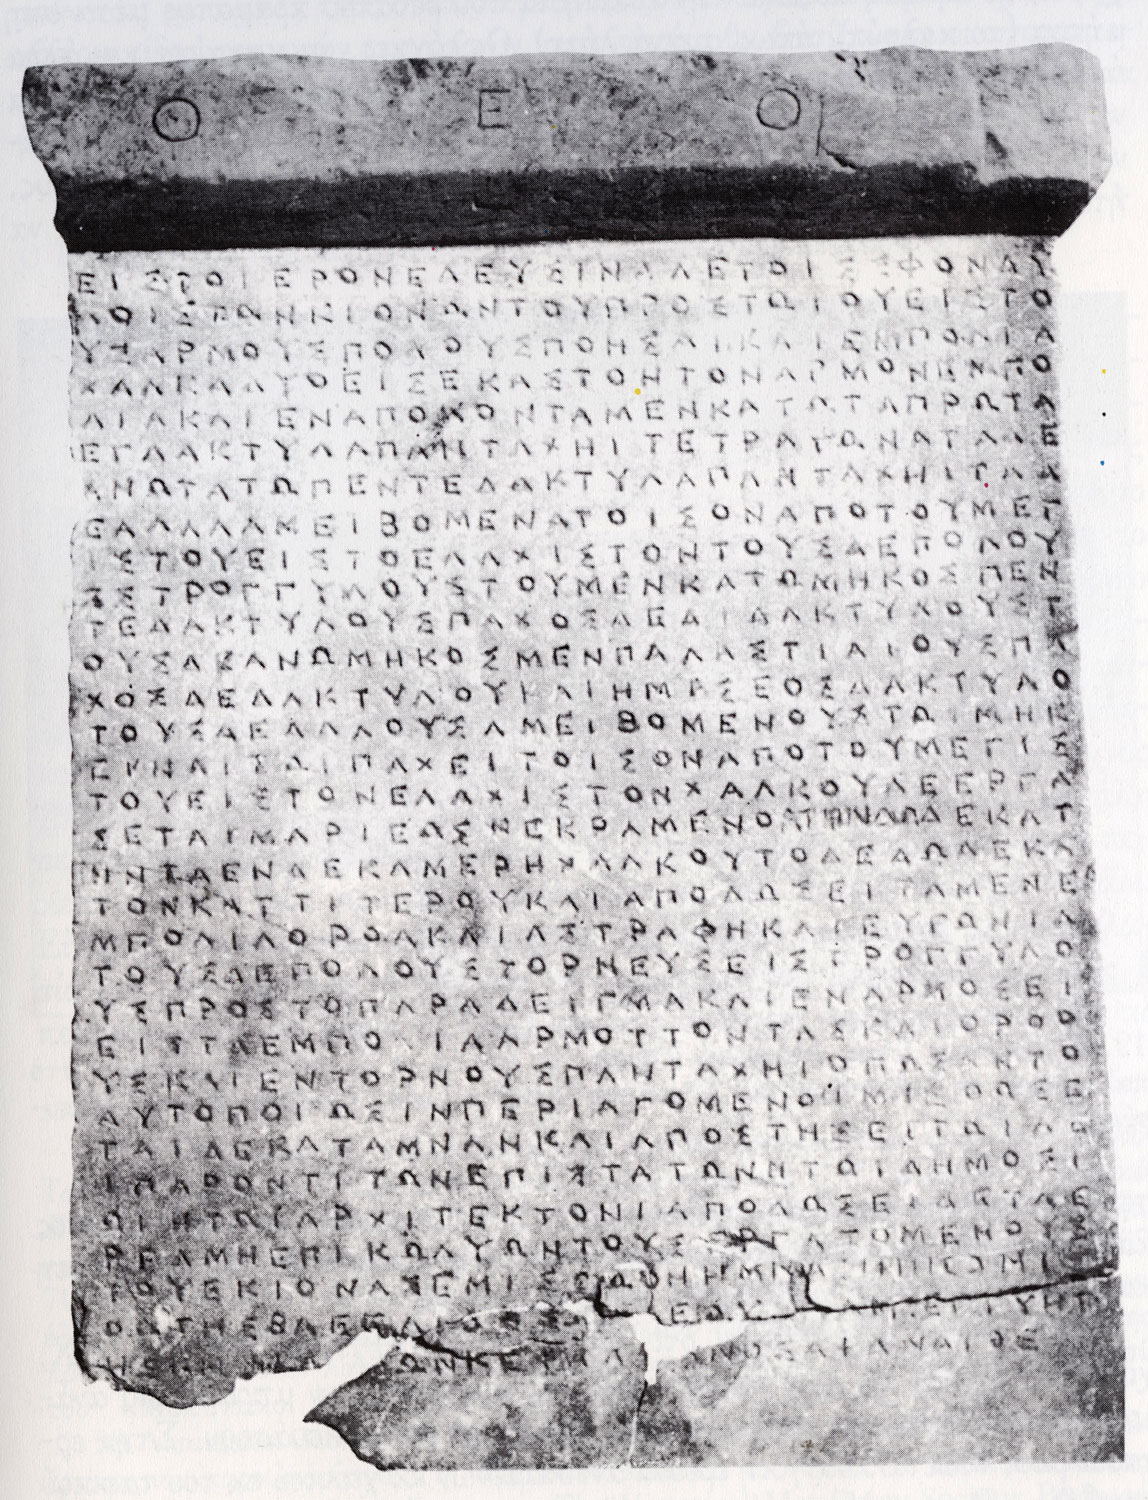 ΘΕΟΙ
ΕΙΣΤΟΙΕΡΟΝΕΛΕΥΣΙΝΑΔΕΤΟΙΣΣΦΟΝΔΥ
ΛΟΙΣΤΩΝΚΙΟΝΩΝΤΟΥΠΡΟΣΤΩΙΟΥΕΙΣΤΟ
ΥΣΑΡΜΟΥΣΠΟΛΟΥΣΠΟΗΣΑΙΚΑΙΕΜΠΟΛΙΑ
ΧΑΛΚΑΔΥΟΕΙΣΕΚΑΣΤΟΝΤΟΝΑΡΜΟΝΕΝΠΟ
ΛΙΑΚΑΙΕΝΑΠΟΛΟΝΤΑΜΕΝΚΑΤΩΤΑΠΡΩΤΑ
ΕΓΔΑΚΤΥΛΑΠΑΝΤΑΧΗΙΤΕΤΡΑΓΩΝΑΤΑΔΕ
ΑΝΩΤΑΤΩΠΕΝΤΕΔΑΚΤΥΛΑΠΑΝΤΑΧΗΙΤΑΔ
ΕΑΛΛΑΑΜΕΙΒΟΜΕΝΑΤΟΙΣΟΝΑΠΟΤΟΥΜΕΓ
ΙΣΤΟΥΕΙΣΤΟΕΛΑΧΙΣΤΟΝΤΟΥΣΔΕΠΟΛΟΥ
ΣΣΤΡΟΓΓΥΛΟΥΣΤΟΥΜΕΝΚΑΤΩΜΗΚΟΣΠΕΝ
ΤΕΔΑΚΤΥΛΟΥΣΠΑΧΟΣΔΕΔΙΔΑΚΤΥΛΟΥΣΤ
ΟΥΣΔΕΑΝΩΜΗΚΟΣΜΕΝΠΑΛΑΣΤΙΑΙΟΥΣΠΑ
ΧΟΣΔΕΔΑΚΤΥΛΟΥΚΑΙΗΜΙΣΕΟΣΔΑΚΤΥΛΟ
ΤΟΥΣΔΕΑΛΛΟΥΣΑΜΕΙΒΟΜΕΝΟΥΣΤΩΙΜΗΚ
ΕΙΚΑΙΤΩΙΠΑΧΕΙΤΟΙΣΟΝΑΠΟΤΟΥΜΕΓΙΣ
ΤΟΥΕΙΣΤΟΝΕΛΑΧΙΣΤΟΝΧΑΛΚΟΥΔΕΕΡΓΑ
ΣΕΤΑΙΜΑΡΙΕΩΣΚΕΚΡΑΜΕΝΟΥΤΗΝΔΩΔΕΚΑΤ
ΗΝΤΑΕΝΔΕΚΑΜΕΡΗΧΑΛΚΟΥΤΟΔΕΔΩΔΕΚΑ
ΤΟΝΚΑΤΤΙΤΕΡΟΥΚΑΙΑΠΟΔΩΣΕΙΤΑΜΕΝΕ
ΜΠΟΛΙΑΟΡΘΑΚΑΙΑΣΤΡΑΦΗΚΑΙΕΥΓΩΝΙΑ
ΤΟΥΣΔΕΠΟΛΟΥΣΤΟΡΝΕΥΣΕΙΣΤΡΟΓΓΥΛΟ
ΥΣΠΡΟΣΤΟΠΑΡΑΔΕΙΓΜΑΚΑΙΕΝΑΡΜΟΣΕΙ
ΕΙΣΤΑΕΜΠΟΛΙΑΑΡΜΟΤΤΟΝΤΑΣΚΑΙΟΡΘΟ
ΥΣΚΑΙΕΝΤΟΡΝΟΥΣΠΑΝΤΑΧΗΙΟΠΩΣΑΝΤΟ
ΑΥΤΟΠΟΙΩΣΙΝΠΕΡΙΑΓΟΜΕΝΟΙΜΙΣΘΩΣΕ
ΤΑΙΔΕΚΑΤΑΜΝΑΝΚΑΙΑΠΟΣΤΗΣΕΙΤΩΙΑΕ
ΙΠΑΡΟΝΤΙΤΩΝΕΠΙΣΤΑΤΩΝΗΤΩΙΔΗΜΟΣΙ
ΩΙΗΤΩΙΑΡΧΙΤΕΚΤΟΝΙΑΠΟΔΩΣΕΙΔΕΤΑΕ
ΡΓΑΜΗΕΠΙΚΩΛΥΩΝΤΟΥΣΕΡΓΑΖΟΜΕΝΟΥΣ
ΤΟΥΣΚΙΟΝΑΣΕΜΙΣΘΩΘΗ